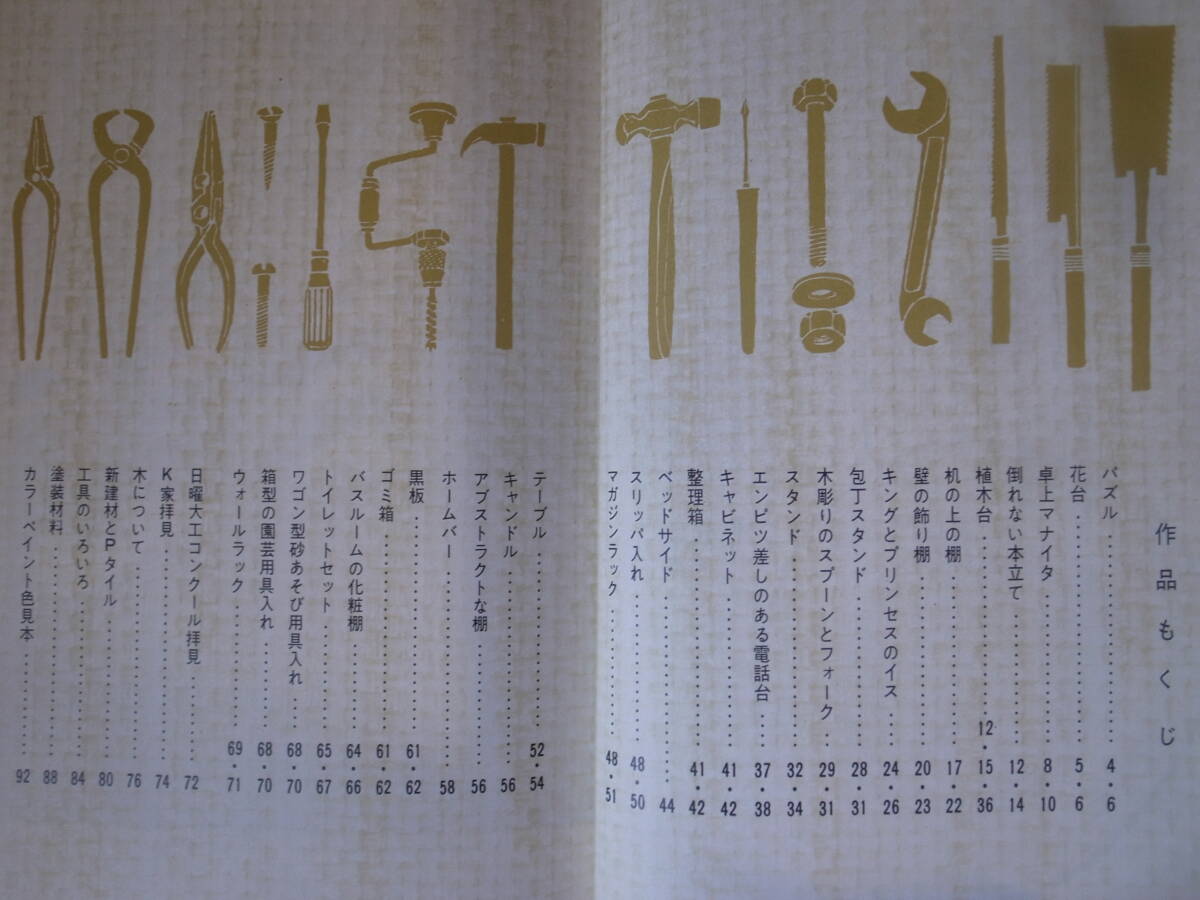 作品もくじ
パズル……………………4・6
花台……………………5・6
卓上マナイタ……………………8・10
倒れない本立て……………………12・14
植木台……………………12・15・36
机の上の棚……………………17・22
壁の飾り棚……………………20・23
キングとプリンセスのイス……………………24・26
包丁スタンド……………………28・31
木彫りのスプーンとフォーク……………………29・31
スタンド……………………32・34
エンピツ差しのある電話台……………………37・38
キャビネット……………………41・42
整理箱……………………41・42
ベッドサイド……………………44
スリッパ入れ……………………48・50
マガジンラック……………………48・51
テーブル……………………52・54
キャンドル……………………56
アブストラクトな棚……………………56
ホームバー……………………58
黒板……………………61・62
ゴミ箱……………………61・62
バスルームの化粧棚……………………64・66
トイレットセット……………………65・67
ワゴン型砂あそび用具入れ……………………68・70
箱型の園芸用具入れ……………………68・70
ウォールラック……………………69・71
日曜大工コンクール拝見……………………72
K家拝見……………………74
木について……………………76
新建材とPタイル……………………80
工具のいろいろ……………………84
塗装材料……………………88
カラーペイント色見本……………………92